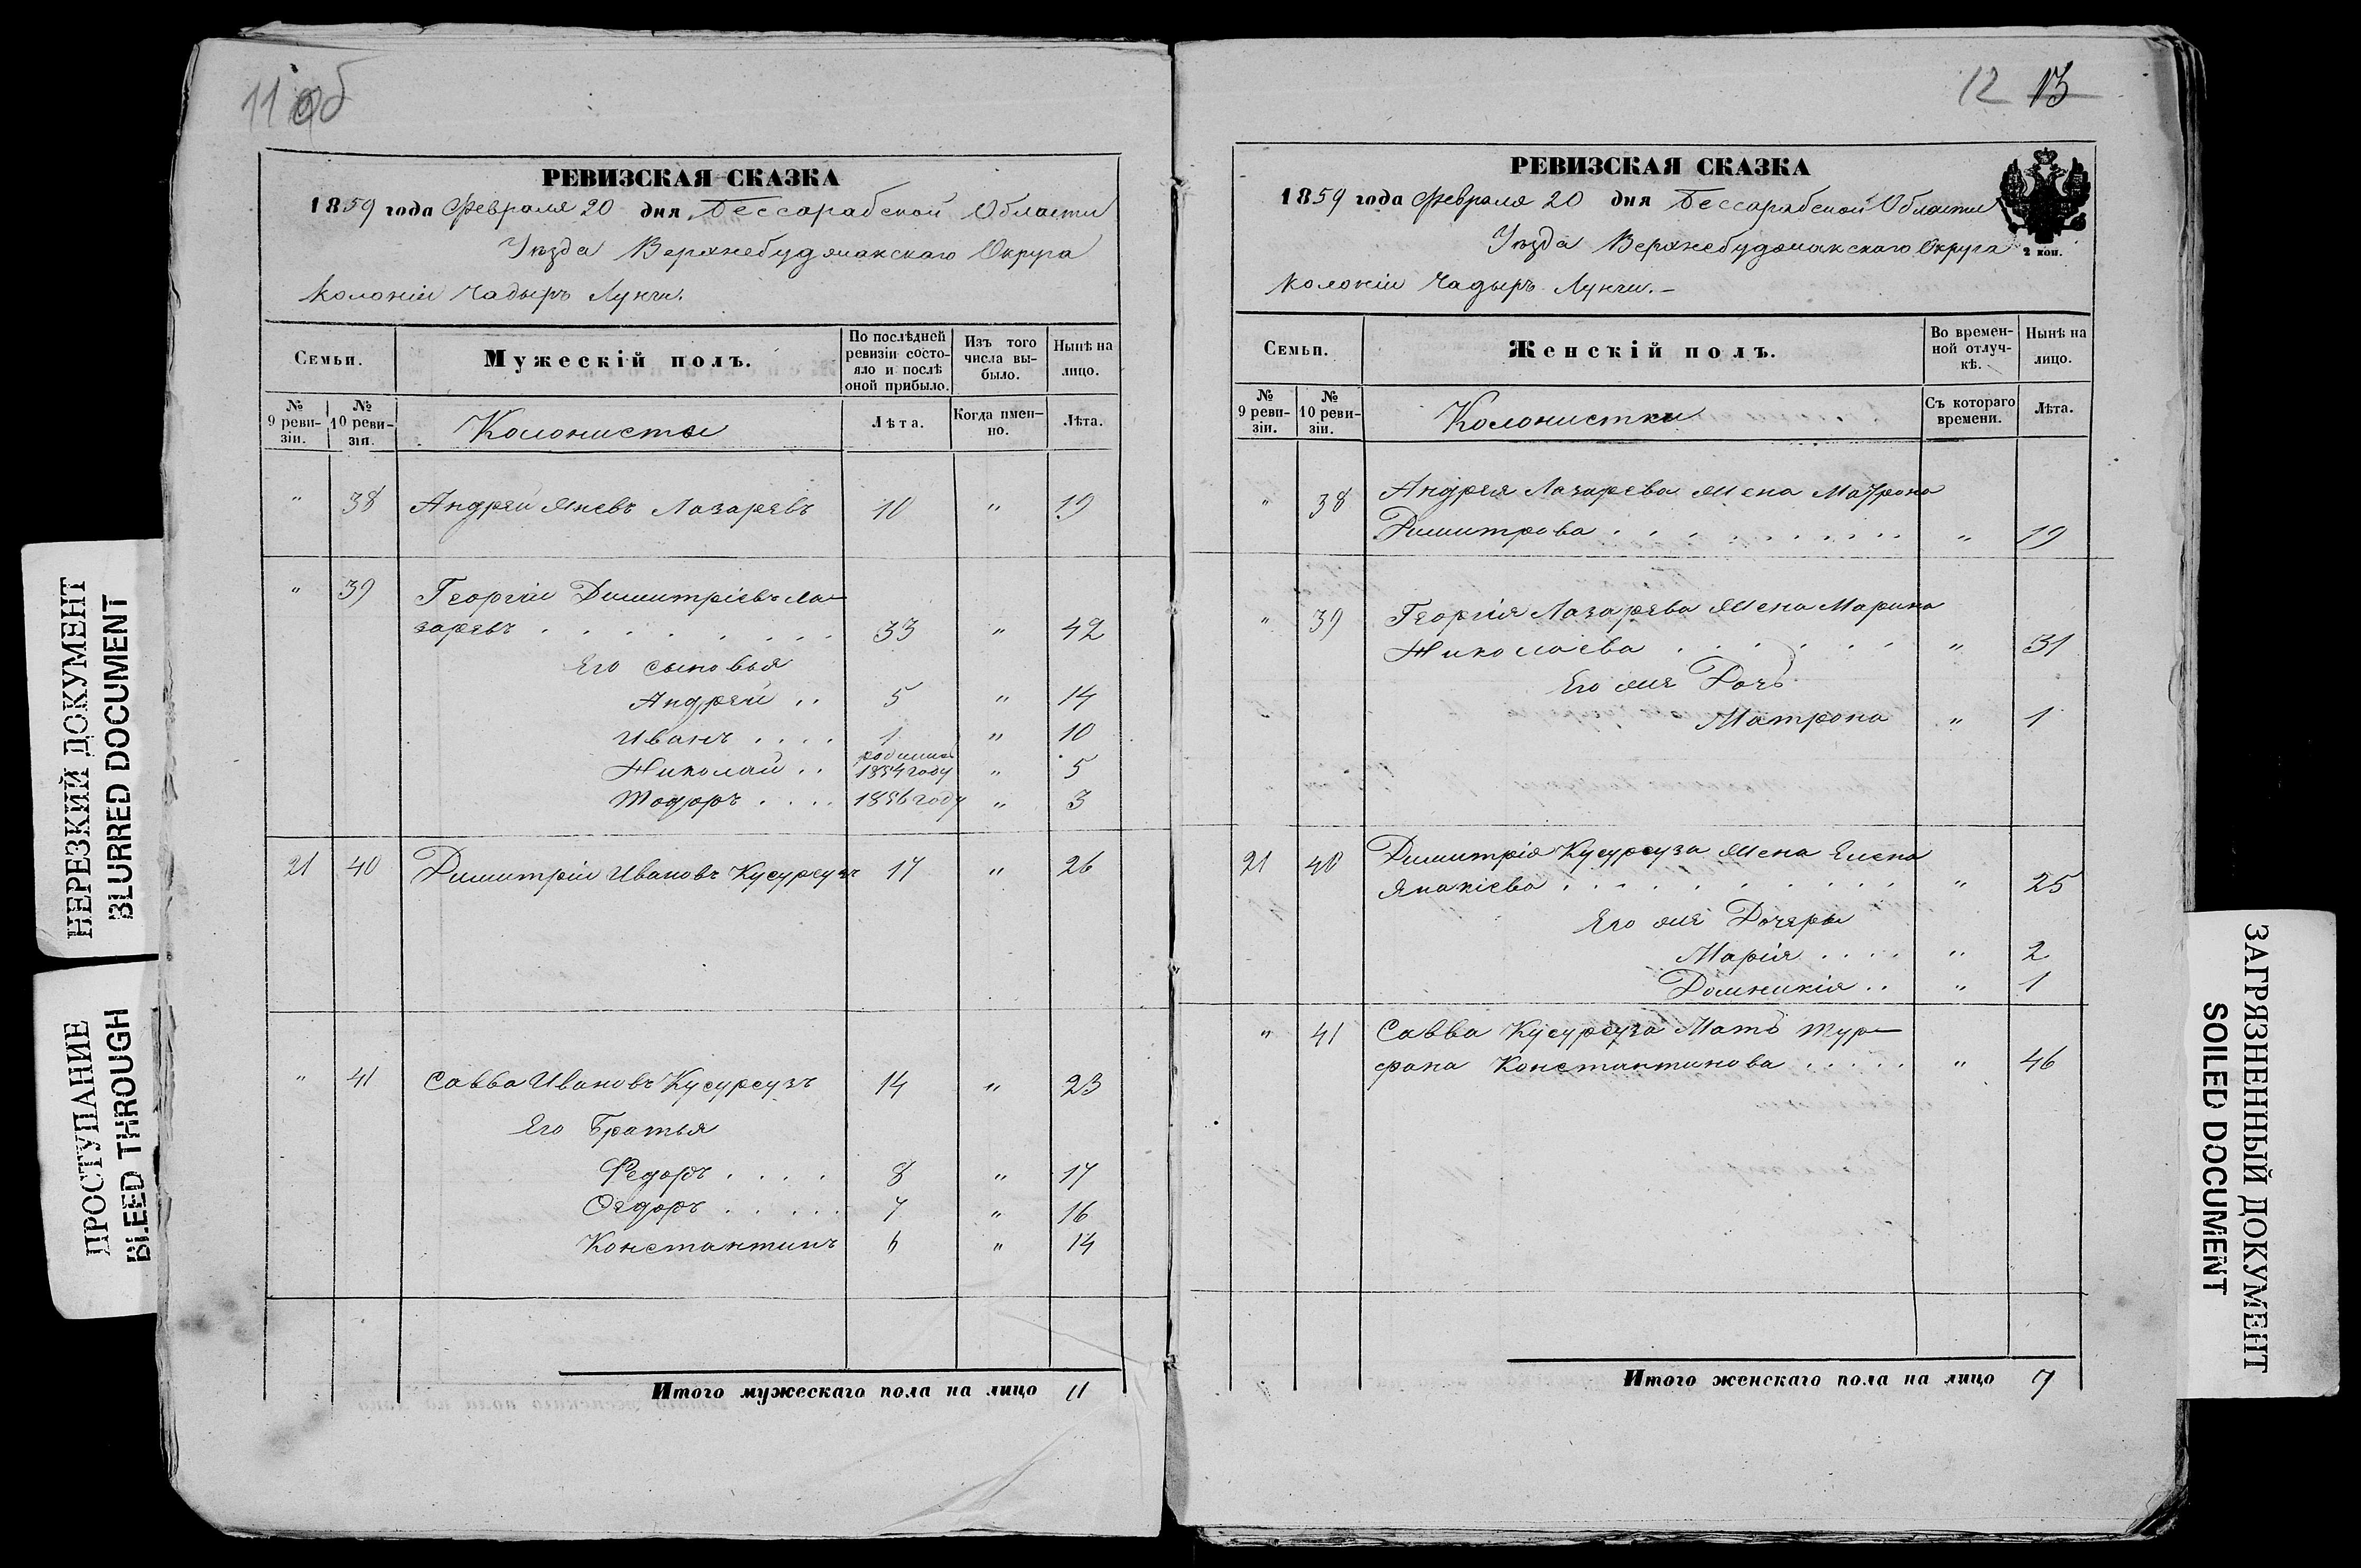 11 об
РЕВИЗСКАЯ СКАЗКА
1859 года Февраля 20 дня Бессарабской Области
Уѣзда Верхнебуджакскаго Округа
Колоніи Чадыръ Лунги.
Семьи.
Мужескій полъ.
По послѣдней ревизіи состояло и послѣ оной прибыло.
Изъ того числа выбыло.
Нынѣ на лицо.
№ 9 ревизіи.
№ 10 ревизіи.
Колонисты
Лѣта.
Когда именно.
Лѣта.
" 38 Андрей Яневъ Лазаревъ 10 " 19
" 39 Георгій Димитріевъ Ла-
заревъ . . . . . . . . 33 " 42
Его сыновья
Андрей . . 5 " 14
Иванъ . . . . 1 " 10
Николай . . 1854 году " 5
Тодоръ . . . . 1856 году " 3
21 40 Димитрій Ивановъ Кусурсузъ 17 " 26
" 41 Савва Ивановъ Кусурсузъ 14 " 23
Его Братья
Федоръ . . . . 8 " 17
Ѳедоръ . . . . . 7 " 16
Константинъ 6 " 14
Итого мужескаго пола на лицо 11
12 13
РЕВИЗСКАЯ СКАЗКА
1859 года Февраля 20 дня Бессарабской Области
Уѣзда Верхнебуджакскаго Округа
2 коп.
Колоніи Чадыръ Лунги.-
Семьи.
Женскій полъ.
Во временной отлучкѣ.
Нынѣ на лицо.
№ 9 ревизіи.
№ 10 ревизіи.
Колонистки
Съ котораго времени.
Лѣта.
" 38 Андрея Лазарева Жена Матрона
Димитрова . . . . . . . . . . " 19
" 39 Георгія Лазарева Жена Марина
Николаева . . . . . . " 31
Его же Дочь
Матрона " 1
21 40 Димитрія Кусурсуза Жена Елена
Янакіева . . . . . . . . . . " 25
Его же Дочери
Марія . . . . " 2
Домникія . . " 1
" 41 Савва Кусурсуза Мать Тур-
фана Константинова . . . . . " 46
Итого женскаго пола на лицо 7
НЕРЕЗКИЙ ДОКУМЕНТ
BLURRED DOCUMENT
ПРОСТУПАНИЕ
BLEED THROUGH
ЗАГРЯЗНЕННЫЙ ДОКУМЕНТ
SOILED DOCUMENT